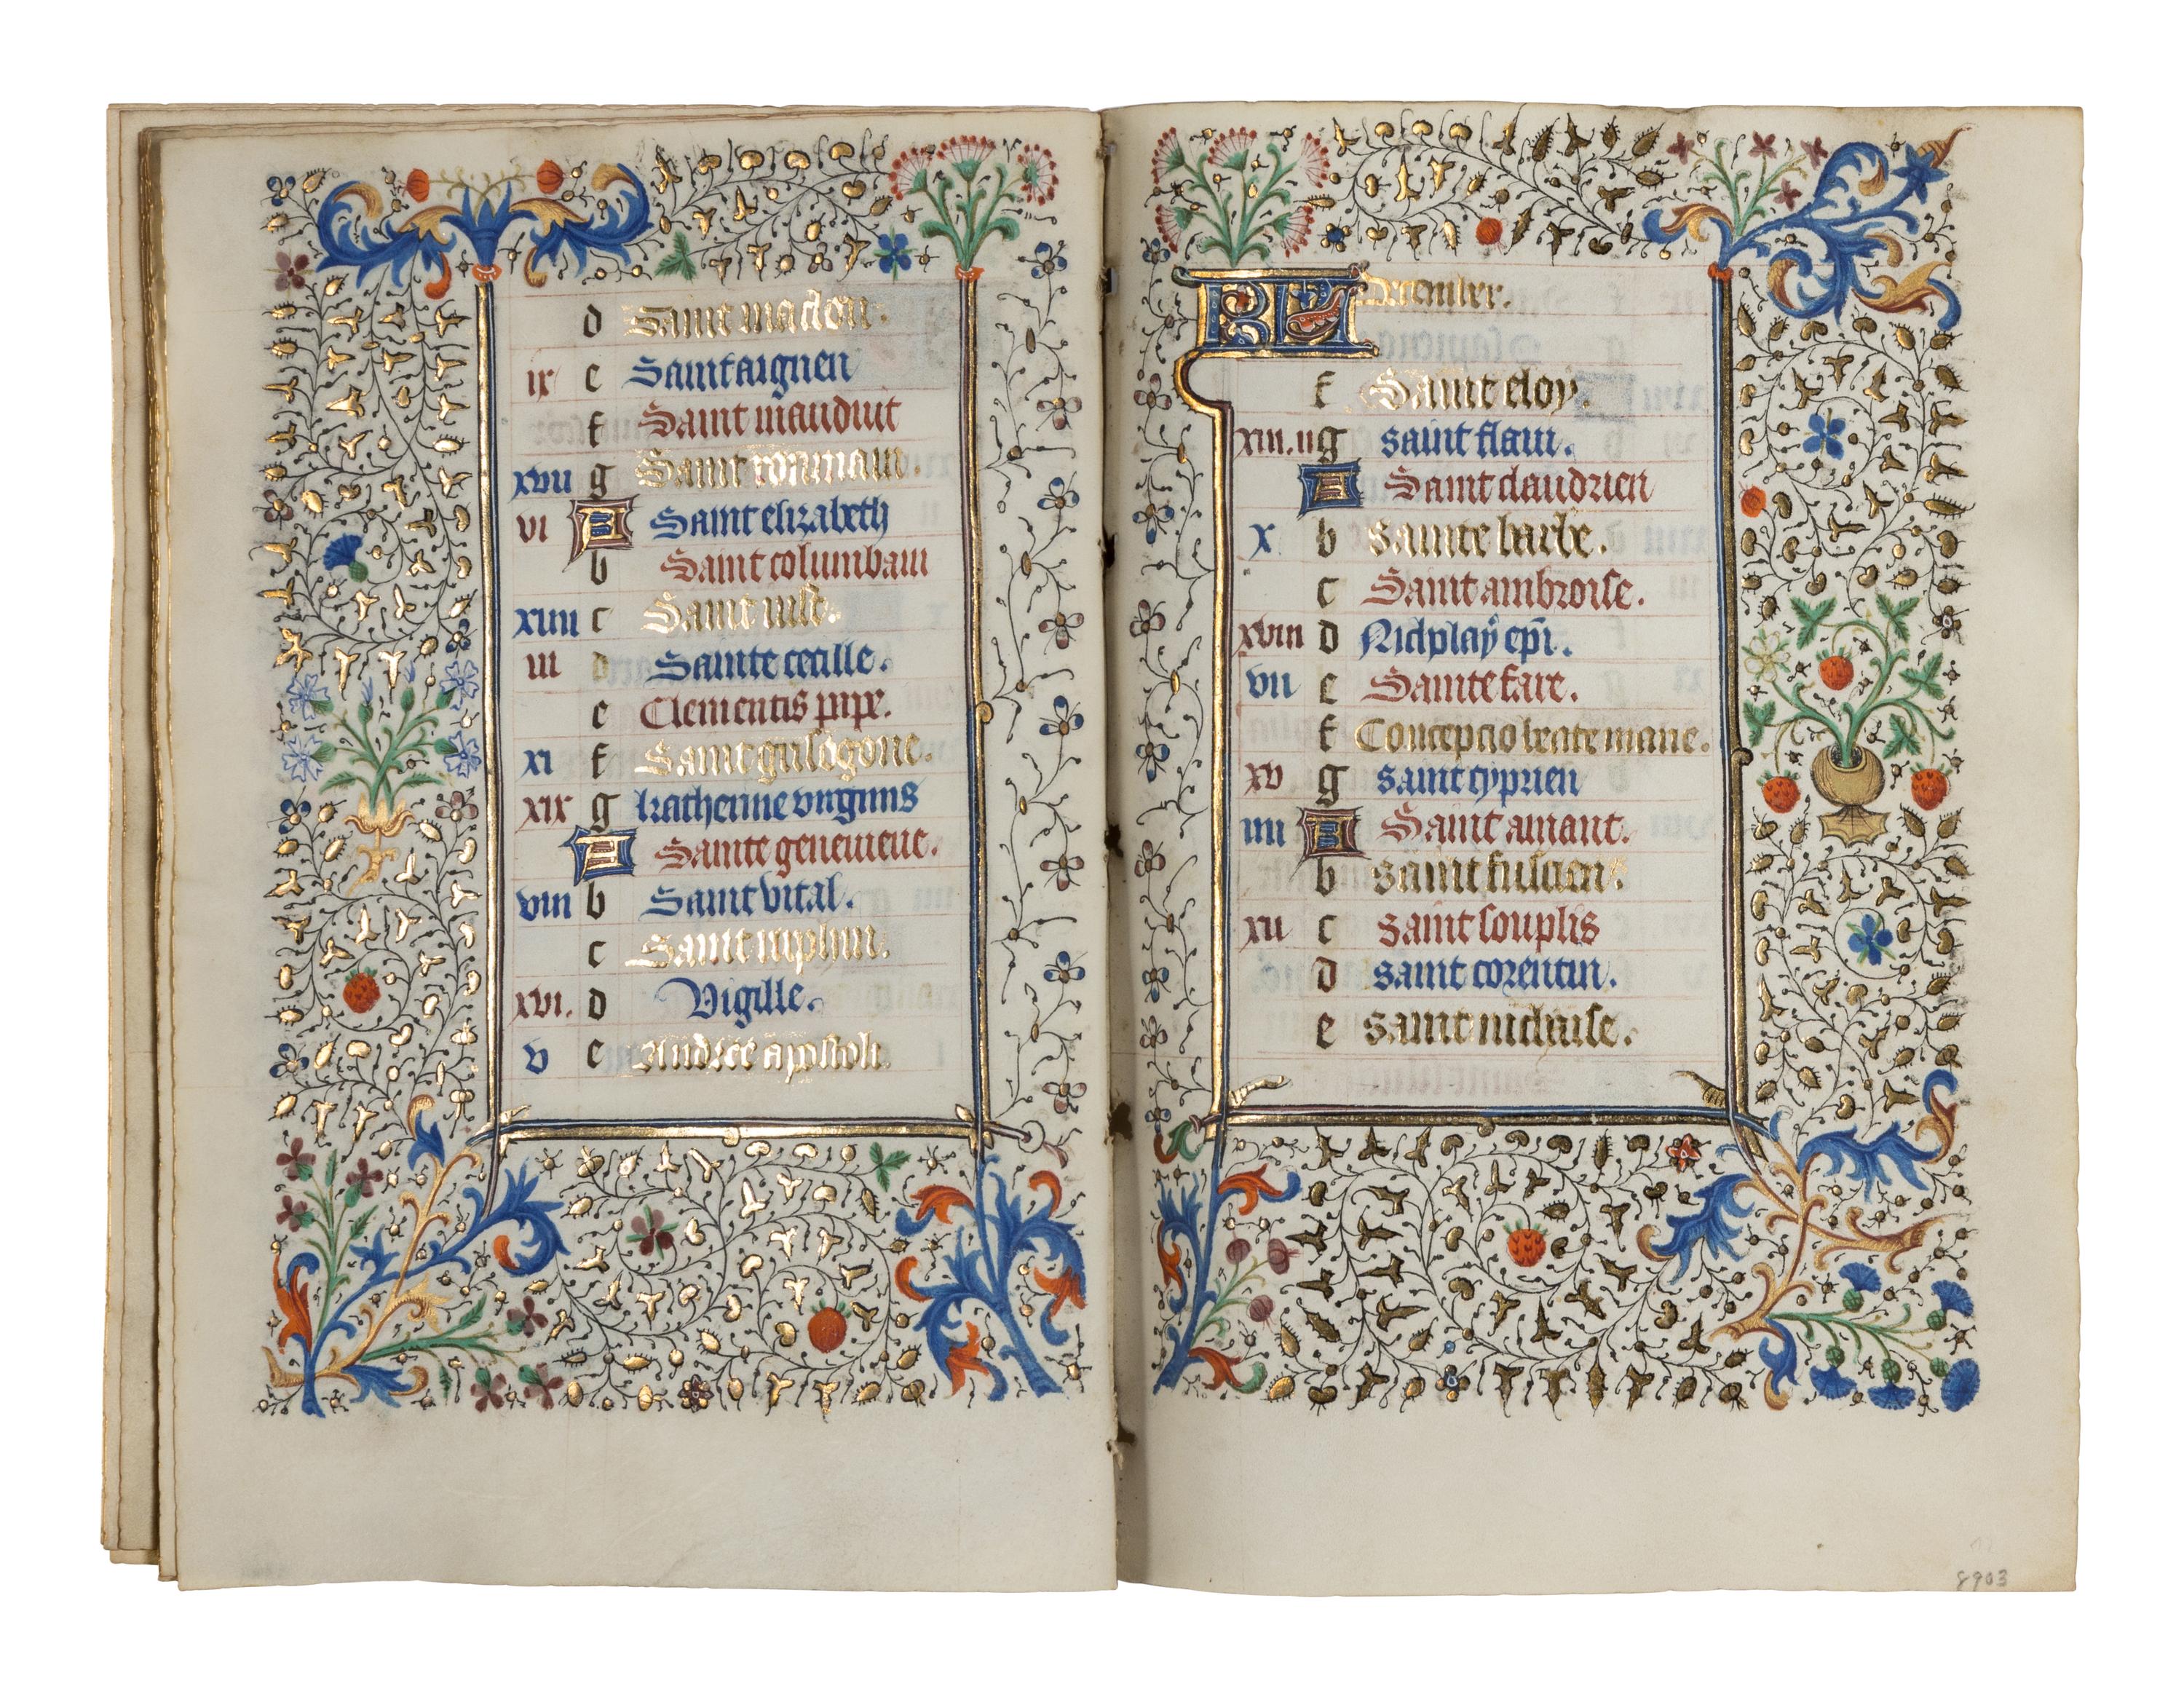 d Saint maclou.
ix e Saint aignen
f Saint mauduit
xvii g Saint rommain.
vi A Saint elizabeth
b Saint columbain
xiiii c Saint
iii d Sainte cecille.
e Clementis pape.
xi f Saint grisogone.
xix g katherine virginis
A Sainte genevieve.
viii b Saint vital.
c Saint
xvi. d Vigille.
v e Andree apostoli.
KL december.
f Saint eloy.
xiii. ii g saint flavi.
A Saint claudrien
x b Sainte barbe.
c Saint ambroise.
xviii d Nicholay epi.
vii e Sainte fare.
f Concepcio beate marie.
xv g saint cyprien
iiii A Saint amant.
b saint fuscien.
xii c saint souplis
d saint corentin.
e saint nichaise.
8903